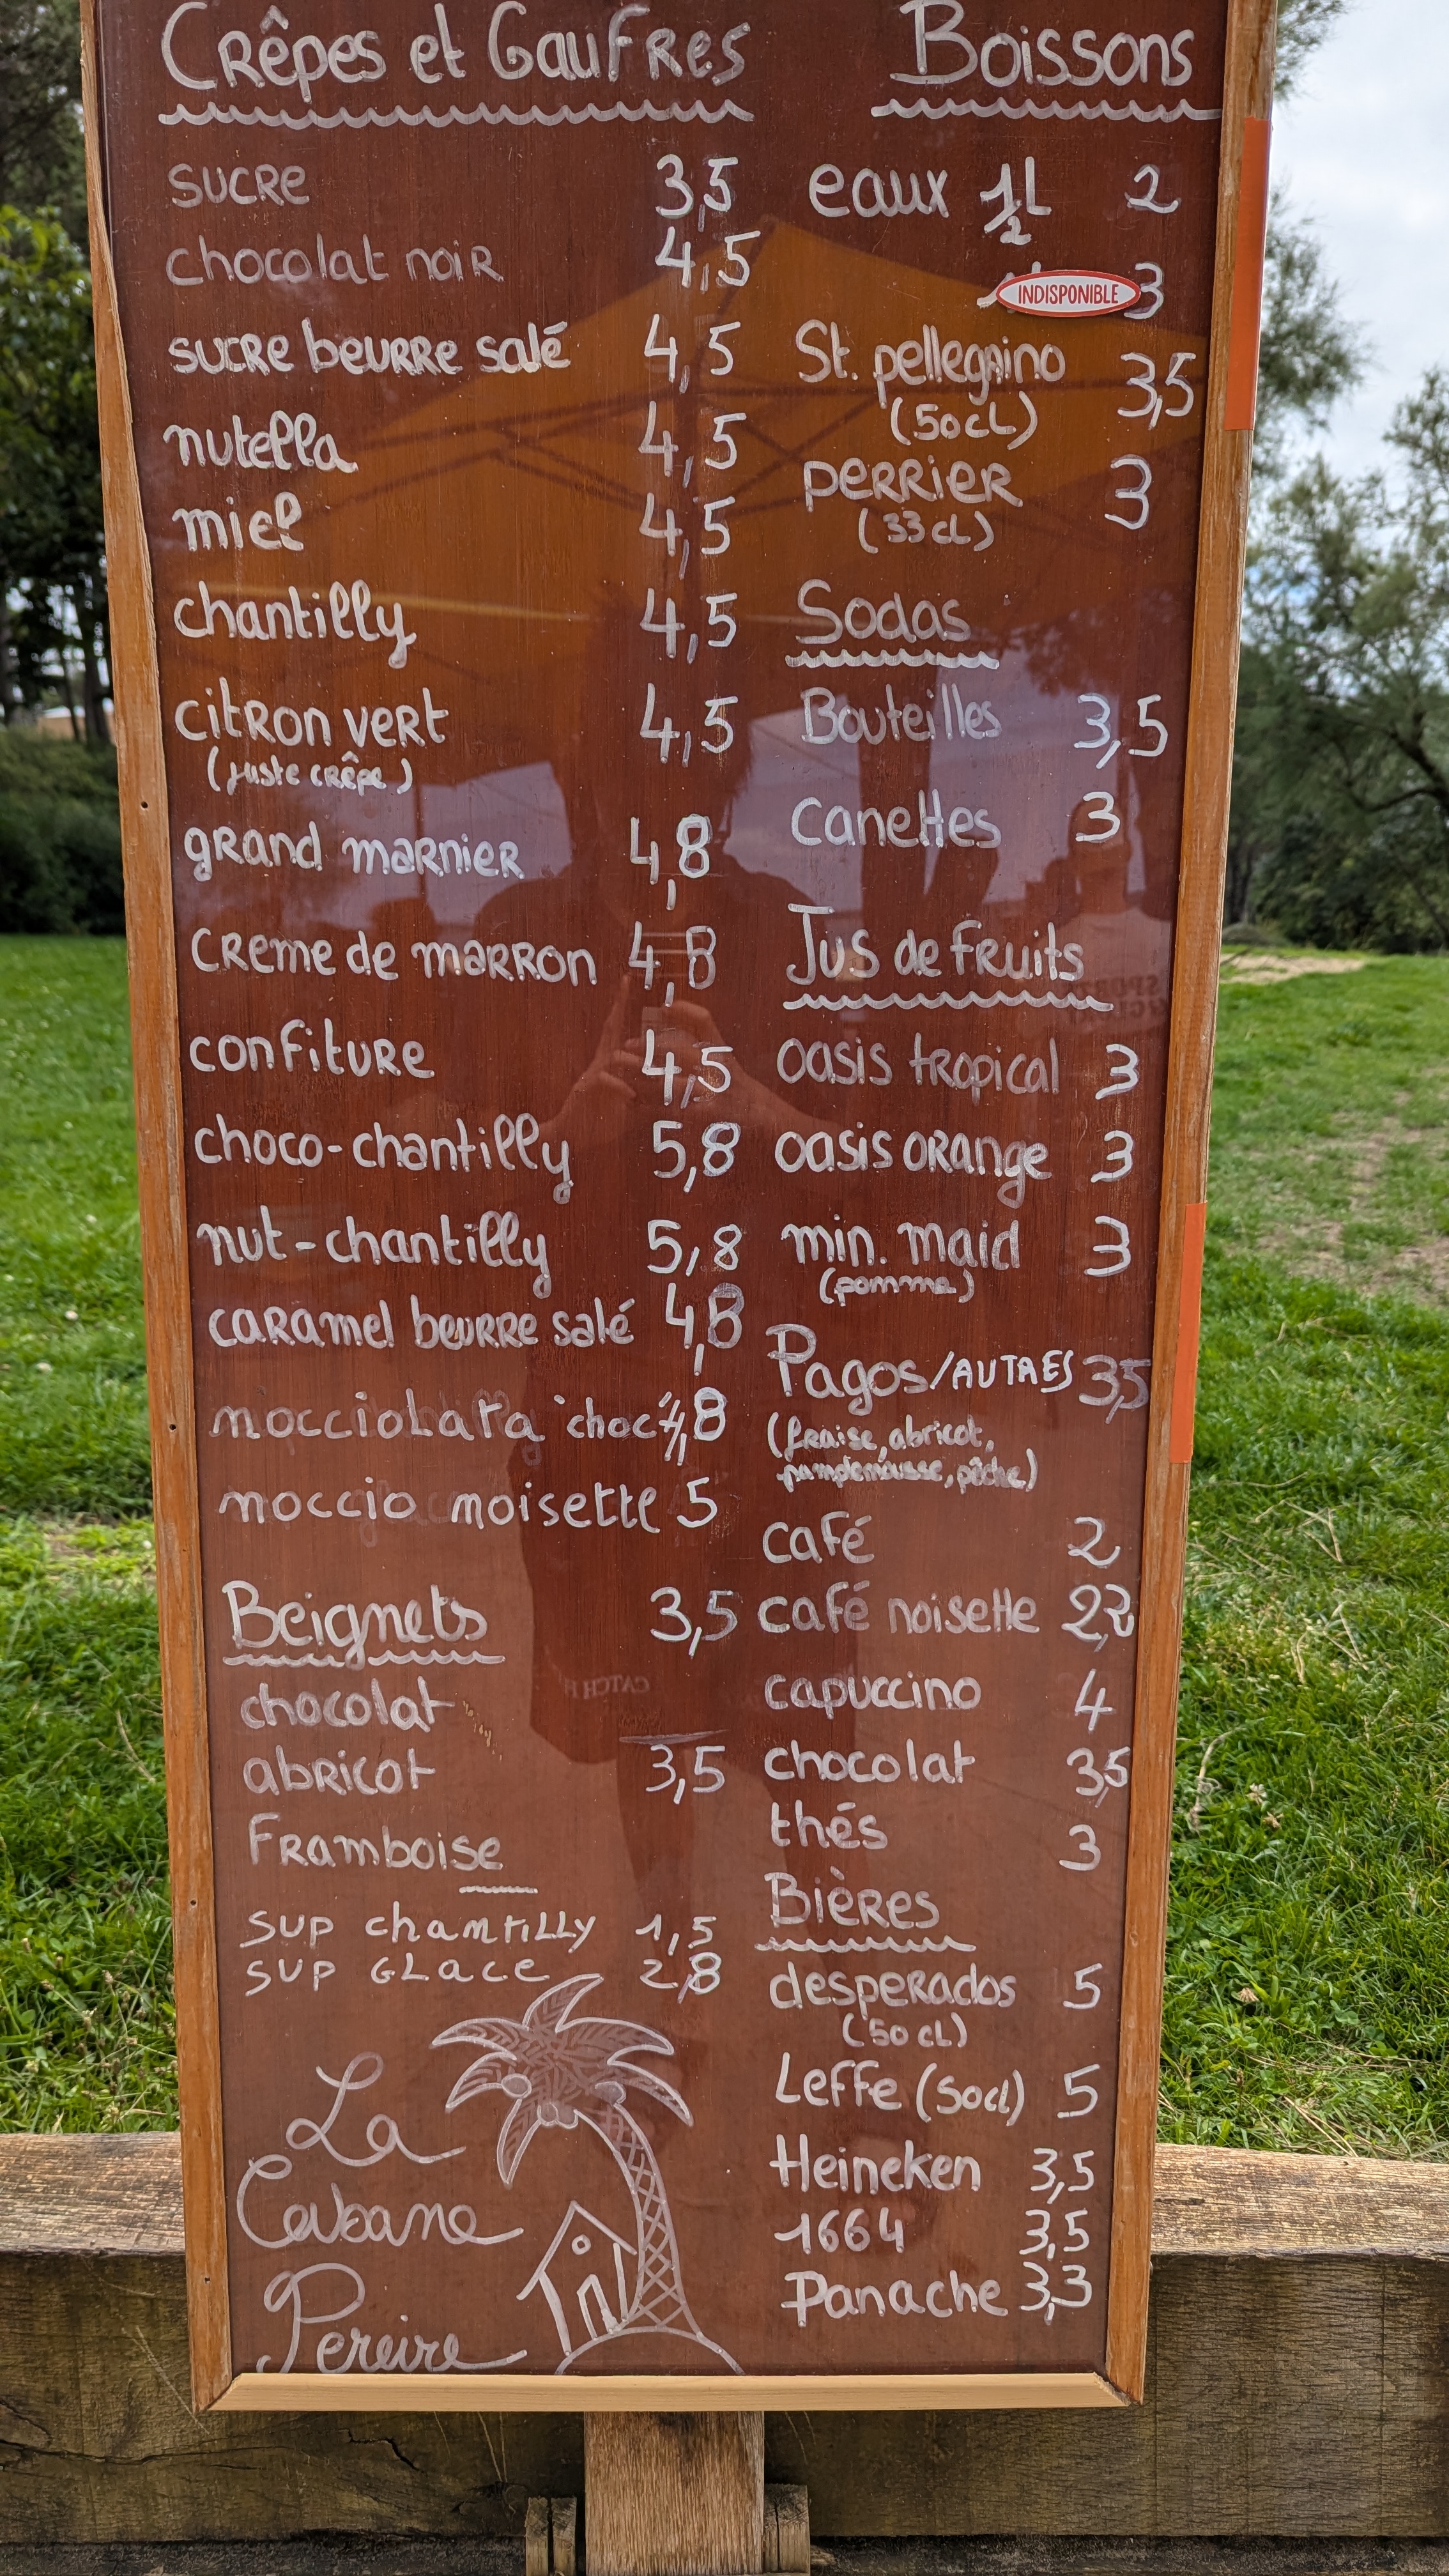 Crêpes et Gaufres
sucre 3,5
chocolat noir 4,5
sucre beurre salé 4,5
nutella 4,5
miel 4,5
chantilly 4,5
citron vert 4,5
(juste crêpe)
grand marnier 4,8
creme de marron 4,8
confiture 4,5
choco-chantilly 5,8
nut-chantilly 5,8
caramel beurre salé 4,8
nocciolata "choc" 4,8
noccio noisette 5
Beignets 3,5
chocolat
abricot 3,5
Framboise
SUP chantilly 1,5
SUP GLACE 2,8
La
Cabane
Pereire
Boissons
eaux 1/2 L 2
INDISPONIBLE 3
St. pellegrino 3,5
(50cL)
PERRIER 3
(33cL)
Sodas
Bouteilles 3,5
canettes 3
Jus de Fruits
oasis tropical 3
oasis orange 3
min. maid 3
(pomme)
Pagos/AUTRES 3,5
(fraise, abricot,
pamplemousse, pêche)
café 2
café noisette
capuccino 4
chocolat 3,5
thés 3
Bières
desperados 5
(50cL)
Leffe (50cl) 5
Heineken 3,5
1664 3,5
Panache 3,3